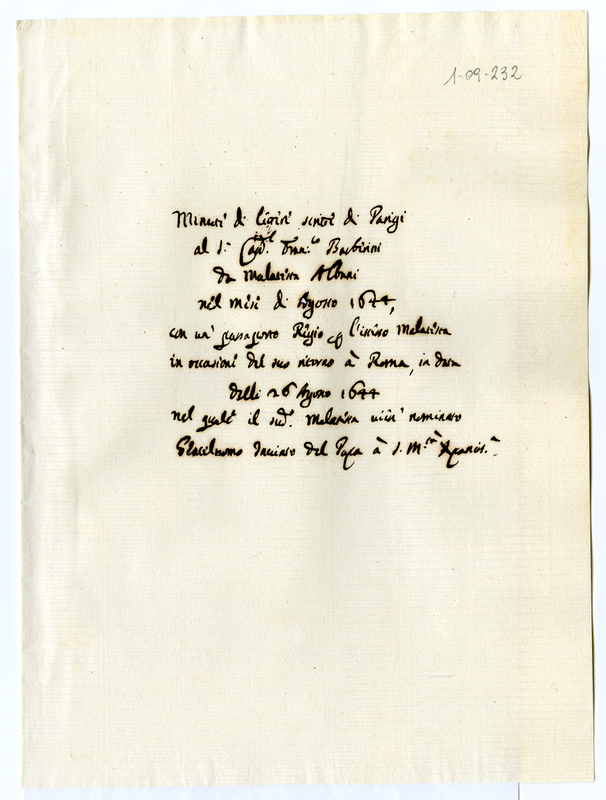 1-09-232
Minute di lettere scritte di Parigi
al S.r Card.l Fran.co Barberini
da Malatesta Albani
nel mese di Agosto 1644,
con un' passaporto Regio p l'istesso Malatesta
in occasione del suo ritorno à Roma, in data
delli 26 Agosto 1644
nel quale il sud.o Malatesta vien' nominato
Gentilhuomo Inviato del Papa à S. M.tà